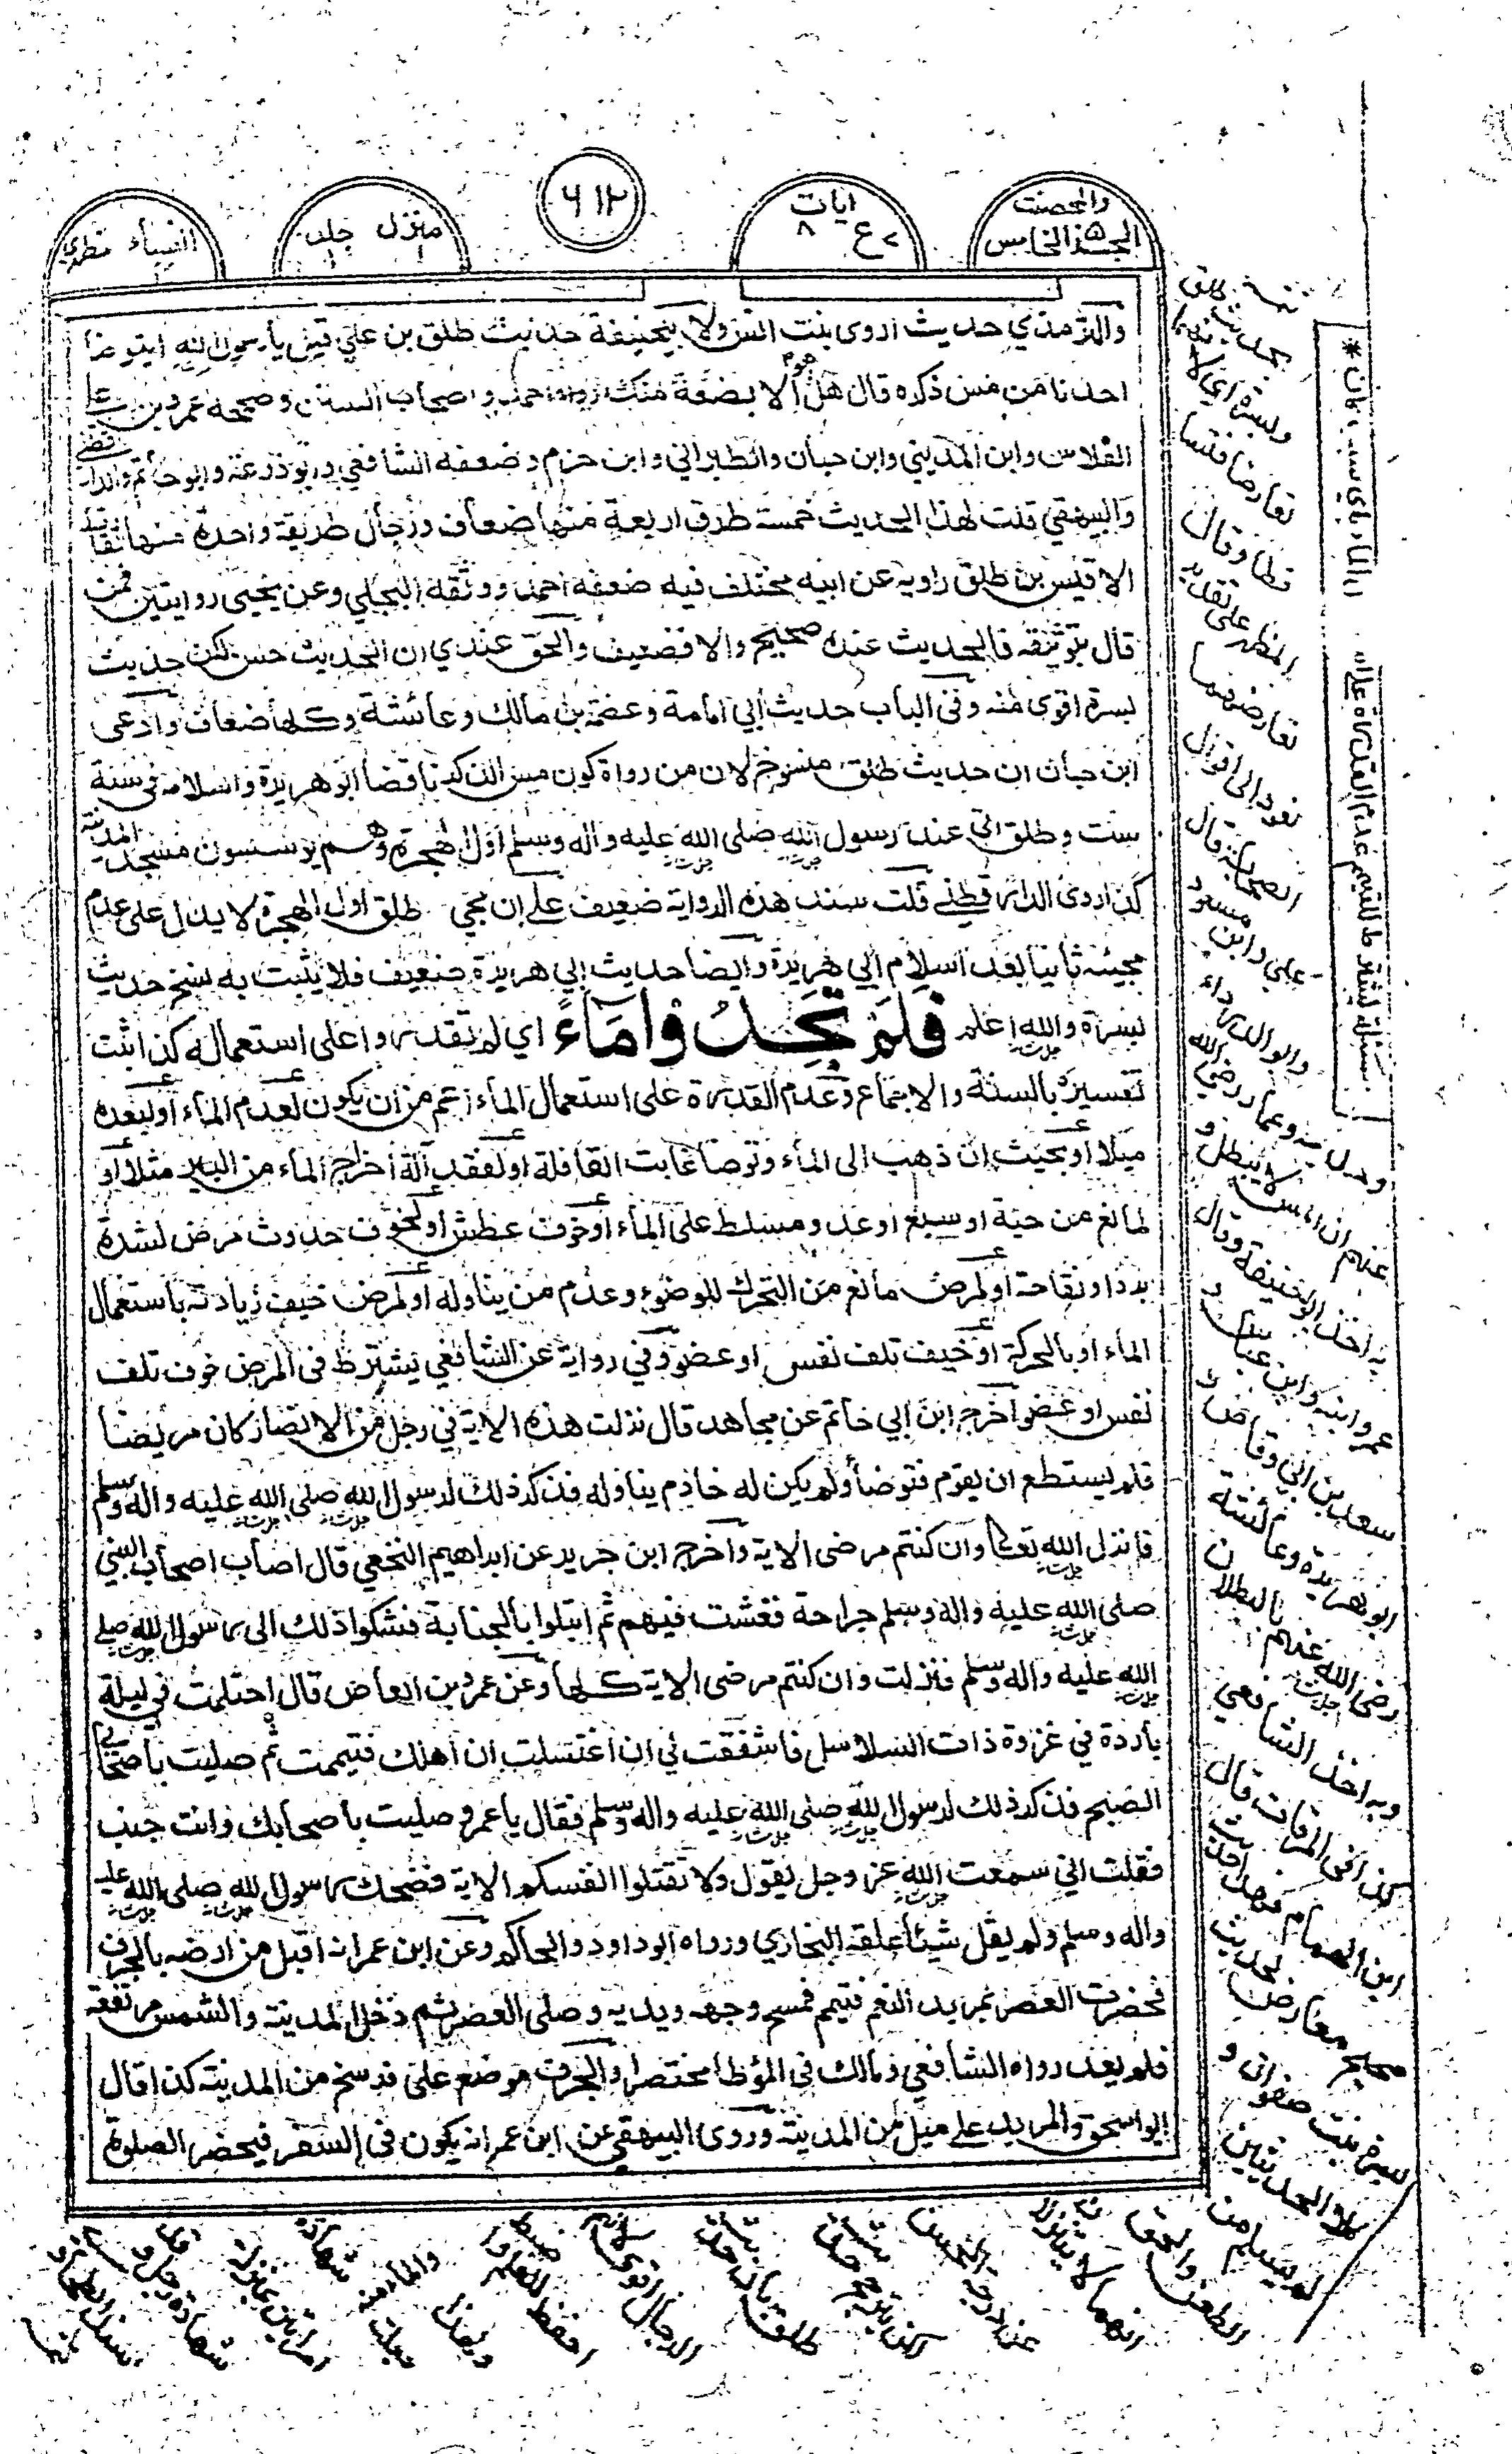 والمحصنت
الجزء الخامس
ايات
٨ ع ٧
٦١٢
منزل جلد
١ ١
النساء مظهري
والترمذي حديث اروى بنت انس ولابي حنيفة حديث طلق بن علي قيل يا رسول الله ايتوضا
احدنا من مس ذكره قال هل هو الا بضعة منك رواه احمد واصحاب السنن وصححه عمرو بن علي
الفلاس وابن المديني وابن حبان والطبراني وابن حزم وضعفه الشافعي وابو زرعة وابو حاتم والدارقطني
والبيهقي قلت لهذا الحديث خمسة طرق اربعة منها ضعاف ورجال طريقة واحدة منها ثقات
الا قيس بن طلق راويه عن ابيه مختلف فيه ضعفه احمد ووثقه العجلي وعن يحيى روايتين فمن
قال بتوثيقه فالحديث عنده صحيح والا فضعيف والحق عندي ان الحديث حسن لكن حديث
بسرة اقوى منه وفي الباب حديث ابي امامة وعصمة بن مالك وعائشة وكلها ضعاف وادعى
ابن حبان ان حديث طلق منسوخ لان من رواة كون مس الذكر ناقضا ابو هريرة واسلامه في سنة
ست وطلق اتى عند رسول الله صلى الله عليه واله وسلم اول الهجرة وهم يؤسسون مسجد المدينة
كذا روى الدارقطني قلت سند هذه الرواية ضعيف على ان مجي طلق اول الهجرة لا يدل على عدم
مجيئه ثانيا بعد اسلام ابي هريرة وايضا حديث ابي هريرة ضعيف فلا يثبت به نسخ حديث
بسرة والله اعلم فَلَمْ تَجِدُوْا مَآءً اي لم تقدروا على استعماله كذا ثبت
تفسيره بالسنة والاجماع وعدم القدرة على استعمال الماء اعم من ان يكون لعدم الماء او لبعده
ميلا او بحيث ان ذهب الى الماء وتوضا غابت القافلة او لفقد آلة اخراج الماء من البير مثلا او
لمانع من حية او سبع او عدو مسلط على الماء او خوف عطش او لخوف حدوث مرض لشدة
برد او نقاحة او لمرض مانع من التحرك للوضوء وعدم من يناوله او لمرض خيف زيادته باستعمال
الماء او بالحركة او خيف تلف نفس او عضو وفي رواية عن الشافعي يشترط في المرض خوف تلف
نفس او عضو اخرج ابن ابي حاتم عن مجاهد قال نزلت هذه الاية في رجل من الانصار كان مريضا
فلم يستطع ان يقوم فتوضأ ولم يكن له خادم يناوله فذكر ذلك لرسول الله صلى الله عليه واله وسلم
فانزل الله تعالى وان كنتم مرضى الاية واخرج ابن جرير عن ابراهيم النخعي قال اصاب اصحاب النبي
صلى الله عليه واله وسلم جراحة ففشت فيهم ثم ابتلوا بالجنابة فشكوا ذلك الى رسول الله صلى
الله عليه واله وسلم فنزلت وان كنتم مرضى الاية كلها وعن عمرو بن العاص قال احتلمت في ليلة
باردة في غزوة ذات السلاسل فاشفقت اني ان اغتسلت ان اهلك فتيممت ثم صليت باصحابي
الصبح فذكر ذلك لرسول الله صلى الله عليه واله وسلم فقال يا عمرو صليت باصحابك وانت جنب
فقلت اني سمعت الله عز وجل يقول ولا تقتلوا انفسكم الاية فضحك رسول الله صلى الله عليه
واله وسلم ولم يقل شيئا علقه البخاري ورواه ابو داود والحاكم وعن ابن عمر انه اقبل من ارضه بالجرف
فحضرت العصر بمربد النعم فتيمم فمسح وجهه ويديه وصلى العصر ثم دخل المدينة والشمس مرتفعة
فلم يعد رواه الشافعي ومالك في المؤطا مختصرا والجرف موضع على فرسخ من المدينة كذا قال
ابو اسحق والمربد على ميل من المدينة وروى البيهقي عن ابن عمر انه يكون في السفر فيحضر الصلوة
بحديث طلق
وبسرة اي لانهما
تعارضا فتسا
قطا وقال
المظهر على تقدير
تعارضهما
نعود الى اقوال
الصحابة قال
علي وابن مسعود
وابو الدرداء
وحذيفة وعمار رضي الله
عنهم ان المس لا يبطل و
به اخذ ابو حنيفة وقال
عمر وابنه وابن عباس و
سعد بن ابي وقاص و
ابو هريرة وعائشة
رضي الله عنهم بالبطلان
وبه اخذ الشافعي
كذا في المرقات قال
ابن الهمام
صحيح معارض لحديث
بسرة بنت صفوان و
كلا الحديثين
لم يسلم من
الطعن والحق
انهما لا ينزلان
عن درجة الحسن
مسئلة يشترط للتيمم عدم القدرة على
الماء باي سبب كان *